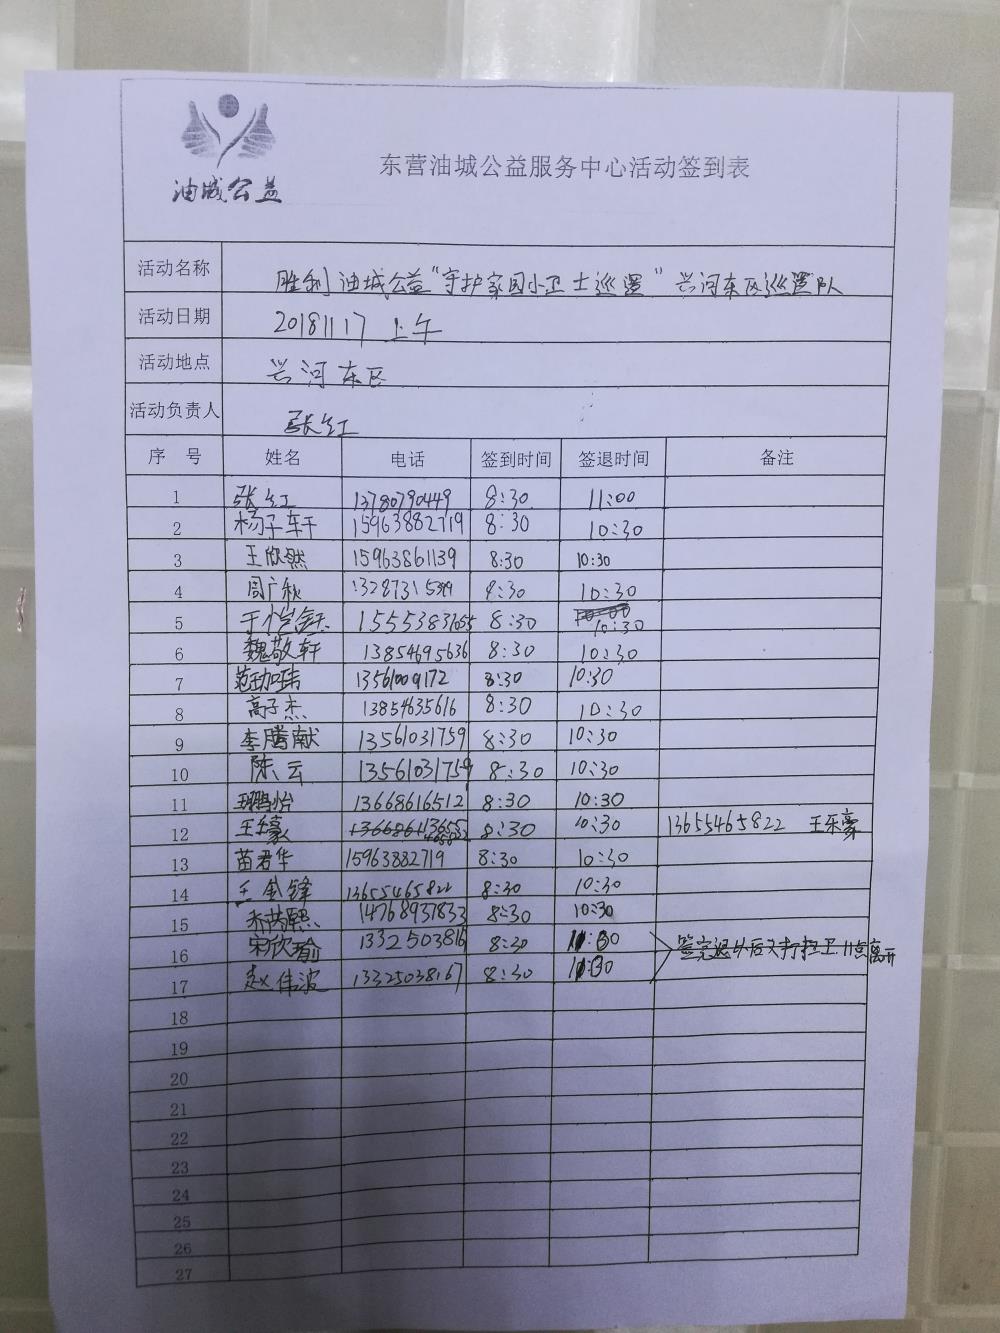 油城公益
东营油城公益服务中心活动签到表
活动名称 胜利油城公益“守护家园小卫士巡逻”兴河东区巡逻队
活动日期 20181117 上午
活动地点 兴河东区
活动负责人 张红
序号 姓名 电话 签到时间 签退时间 备注
1 张红 13780790449 8:30 11:00
2 杨子轩 15963882719 8:30 10:30
3 王欣然 15963861139 8:30 10:30
4 周广秋 8:30 10:30
5 8:30 10:30
6 魏敬轩 13854695636 8:30 10:30
7 13561009172 8:30 10:30
8 高子杰 13854635616 8:30 10:30
9 李腾献 13561031759 8:30 10:30
10 陈云 13561031759 8:30 10:30
11 13668616512 8:30 10:30
12 8:30 10:30 13655465822 王乐豪
13 苗君华 15963882719 8:30 10:30
14 王金锋 13655465822 8:30 10:30
15 14768937833 8:30 10:30
16 宋欣瑜 1332503816 8:30
17 赵伟波 13325038167 8:30
签完退以后又打扫卫 11点离开
18
19
20
21
22
23
24
25
26
27